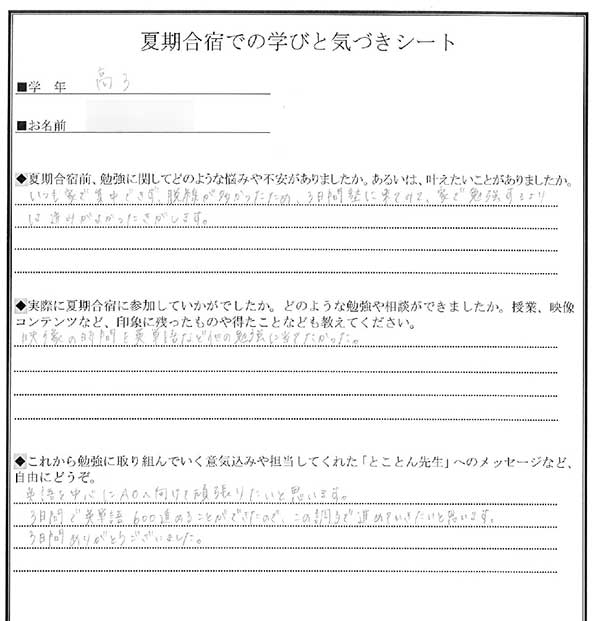 夏期合宿での学びと気づきシート
■学 年 高3
■お名前
◆夏期合宿前、勉強に関してどのような悩みや不安がありましたか。あるいは、叶えたいことがありましたか。
いつも家で集中できず、脱線が多かったため、3日間塾に来てみて、家で勉強するより
は進みがよかった気がします。
◆実際に夏期合宿に参加していかがでしたか。どのような勉強や相談ができましたか。授業、映像
コンテンツなど、印象に残ったものや得たことなども教えてください。
映像の時間を英単語など他の勉強に当てたかった。
◆これから勉強に取り組んでいく意気込みや担当してくれた「とことん先生」へのメッセージなど、
自由にどうぞ。
英語を中心にAO入向けて頑張りたいと思います。
3日間で英単語600進めることができたので、この調子で進めていきたいと思います。
3日間ありがとうございました。